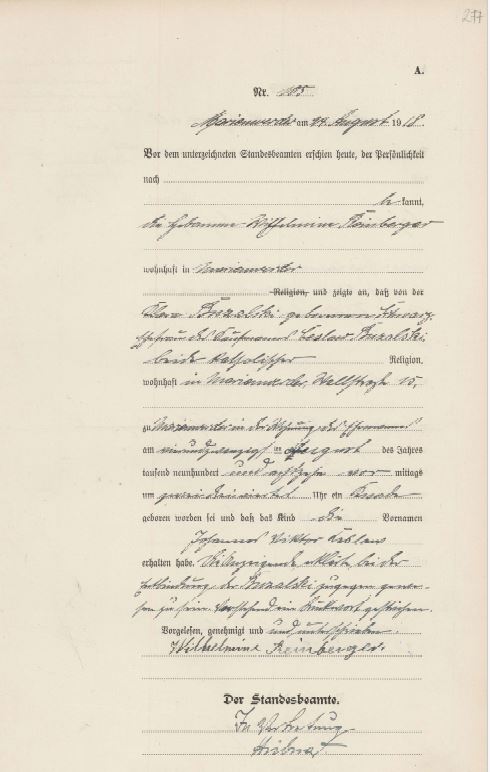 277
A.
Nr. 185
Marienwerder am 24. August 1918
Vor dem unterzeichneten Standesbeamten erschien heute, der Persönlichkeit
nach
be kannt,
die Hebamme Wilhelmine Reinberger
wohnhaft in Marienwerder
Religion, und zeigte an, daß von der
geborenen
Ehefrau des Kaufmanns
beide katholischer Religion,
wohnhaft in Marienwerder, 15,
zu Marienwerder in der Wohnung des Ehemannes
am vierundzwanzigsten August des Jahres
tausend neunhundert und achtzehn vor mittags
um zwei Uhr ein Knabe
geboren worden sei und daß das Kind die Vornamen
Johannes Viktor
erhalten habe. Die Anzeigende bei der
Entbindung der zugegen gewe-
sen zu sein. Vorstehend ein Druckwort gestrichen.
Vorgelesen, genehmigt und unterschrieben.
Wilhelmine Reinberger.
Der Standesbeamte.
In Vertretung